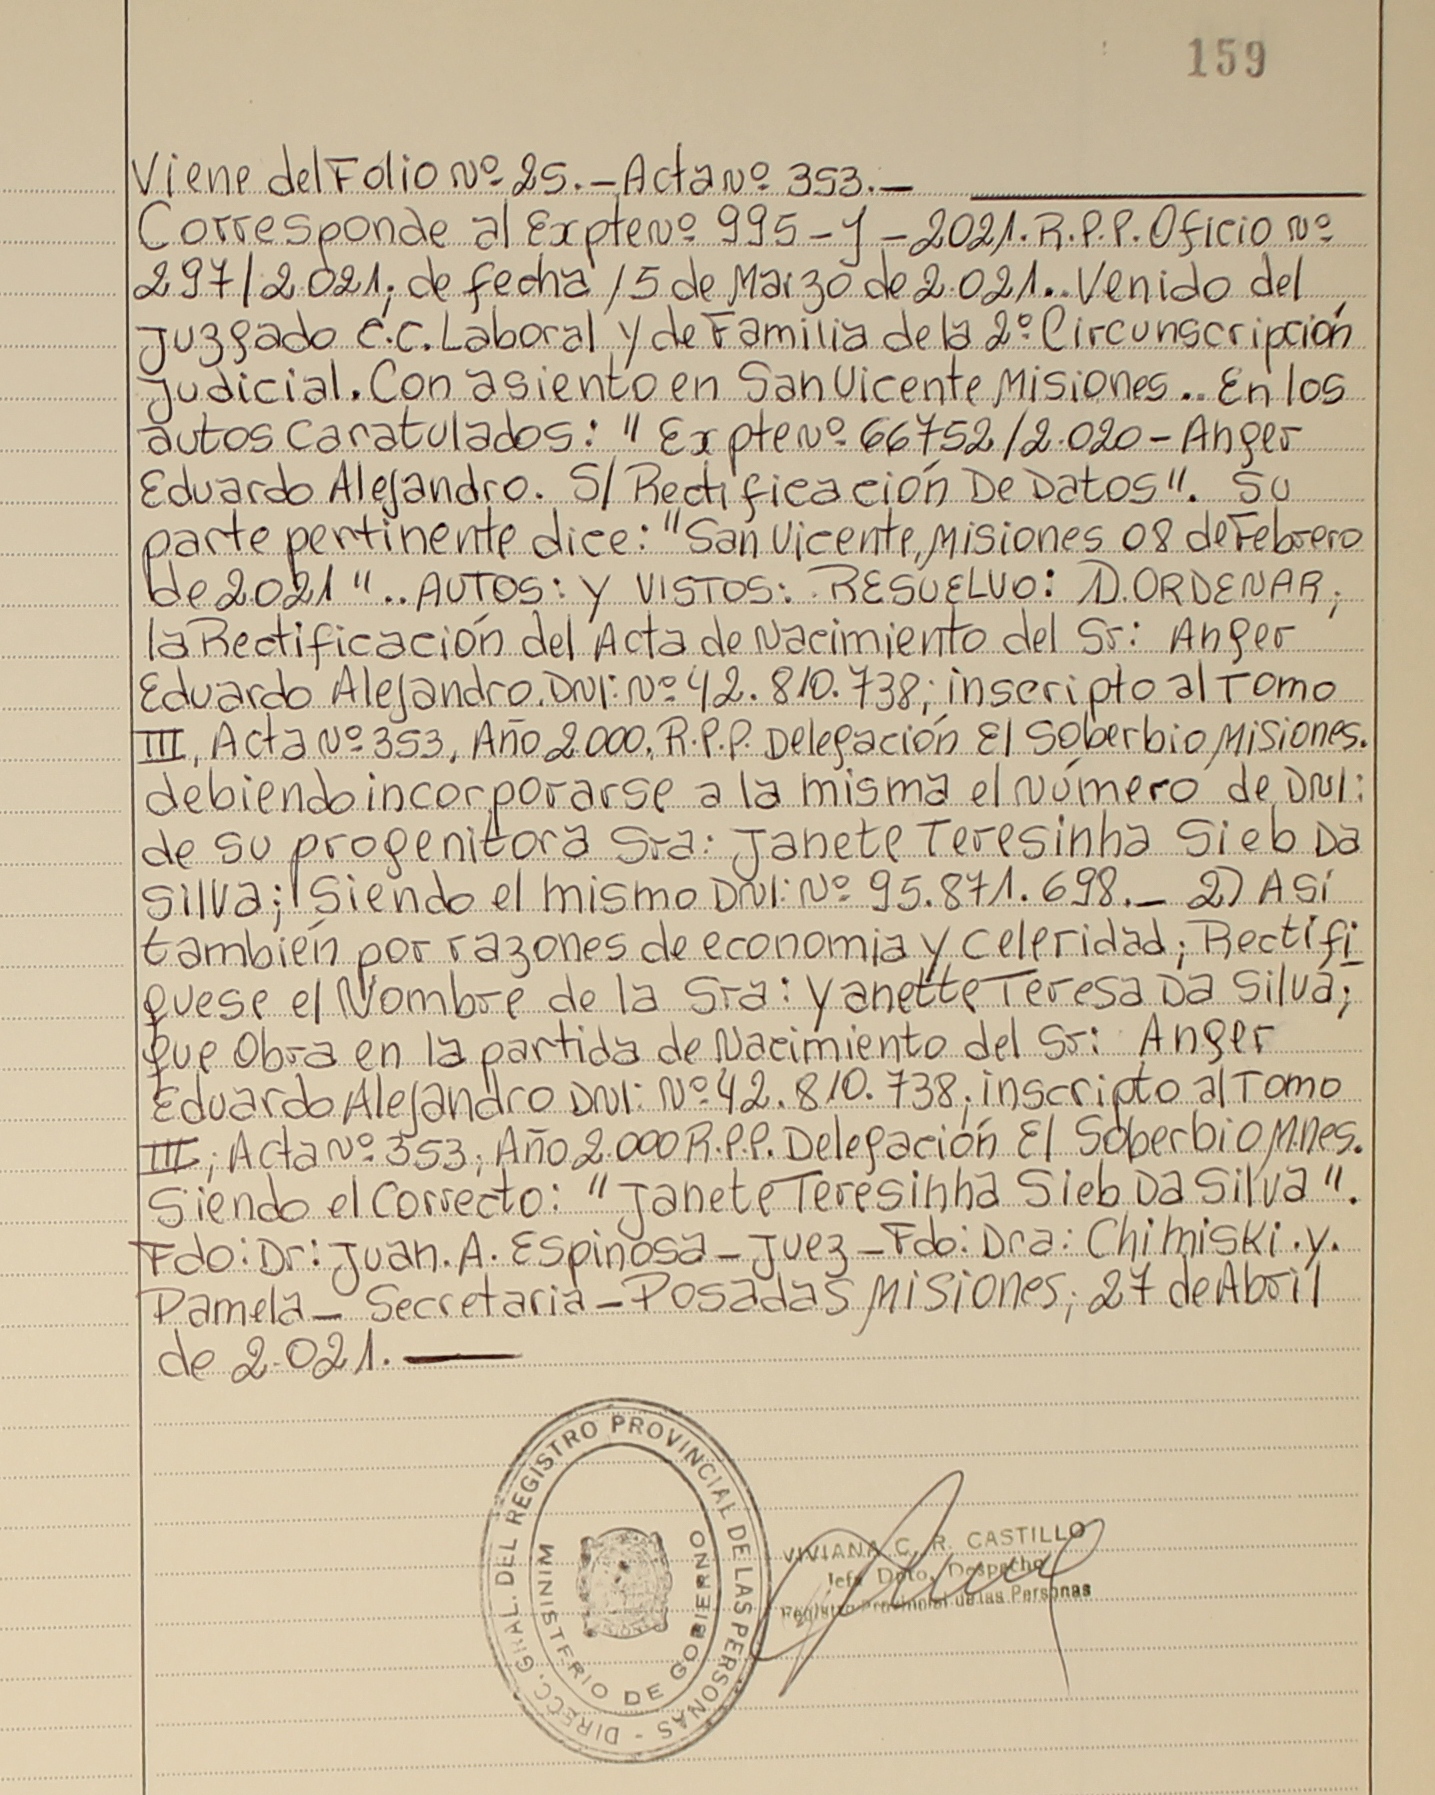 159
Viene del Folio Nº 25.- Acta Nº 353.-
Corresponde al Expte Nº 995-Y-2021. R.P.P. Oficio Nº
297/2.021; de fecha 15 de Marzo de 2.021.. Venido del
Juzgado C.C. Laboral y de Familia de la 2º Circunscripción
Judicial. Con asiento en San Vicente Misiones.. En los
autos caratulados: "Expte Nº 66752/2.020 - Anger
Eduardo Alejandro. S/ Rectificación De Datos". Su
parte pertinente dice: "San Vicente, Misiones 08 de Febrero
de 2.021".. AUTOS: Y VISTOS: RESUELVO: 1). ORDENAR;
la Rectificación del Acta de Nacimiento del Sr: Anger
Eduardo Alejandro. DNI: Nº 42.810.738; inscripto al Tomo
III, Acta Nº 353, Año 2.000, R.P.P. Delegación El Soberbio Misiones.
debiendo incorporarse a la misma el Número de DNI:
de su progenitora Sra: Janete Teresinha Sieb Da
Silva; Siendo el mismo DNI: Nº 95.871.698.- 2) Así
también por razones de economia y celeridad; Rectifi
quese el Nombre de la Sra: Yanette Teresa Da Silva;
que Obra en la partida de Nacimiento del Sr: Anger
Eduardo Alejandro DNI: Nº 42.810.738; inscripto al Tomo
III; Acta Nº 353; Año 2.000 R.P.P. Delegación El Soberbio Mnes.
Siendo el Correcto: "Janete Teresinha Sieb Da Silva".
Fdo: Dr: Juan. A. Espinosa - Juez - Fdo: Dra: Chimiski. y.
Pamela - Secretaria - Posadas Misiones; 27 de Abril
de 2.021.
DIRECC. GRAL. DEL REGISTRO PROVINCIAL DE LAS PERSONAS -
MINISTERIO DE GOBIERNO
VIVIANA C. R. CASTILLO
Jefe Dpto. Despacho
Registro Provincial de las Personas